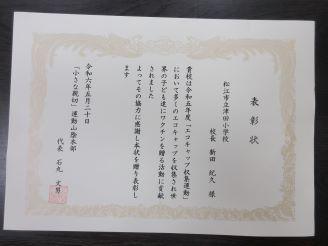 表彰状
松江市立津田小学校
校長 新田 紀久 様
貴校は令和五年度「エコキャップ収集運動」
において多くのエコキャップを収集され世
界の子ども達にワクチンを贈る活動に貢献
されました
よってその協力に感謝し本状を贈り表彰し
ます
令和六年五月二十日
「小さな親切」運動山陰本部
代表 石丸 文男